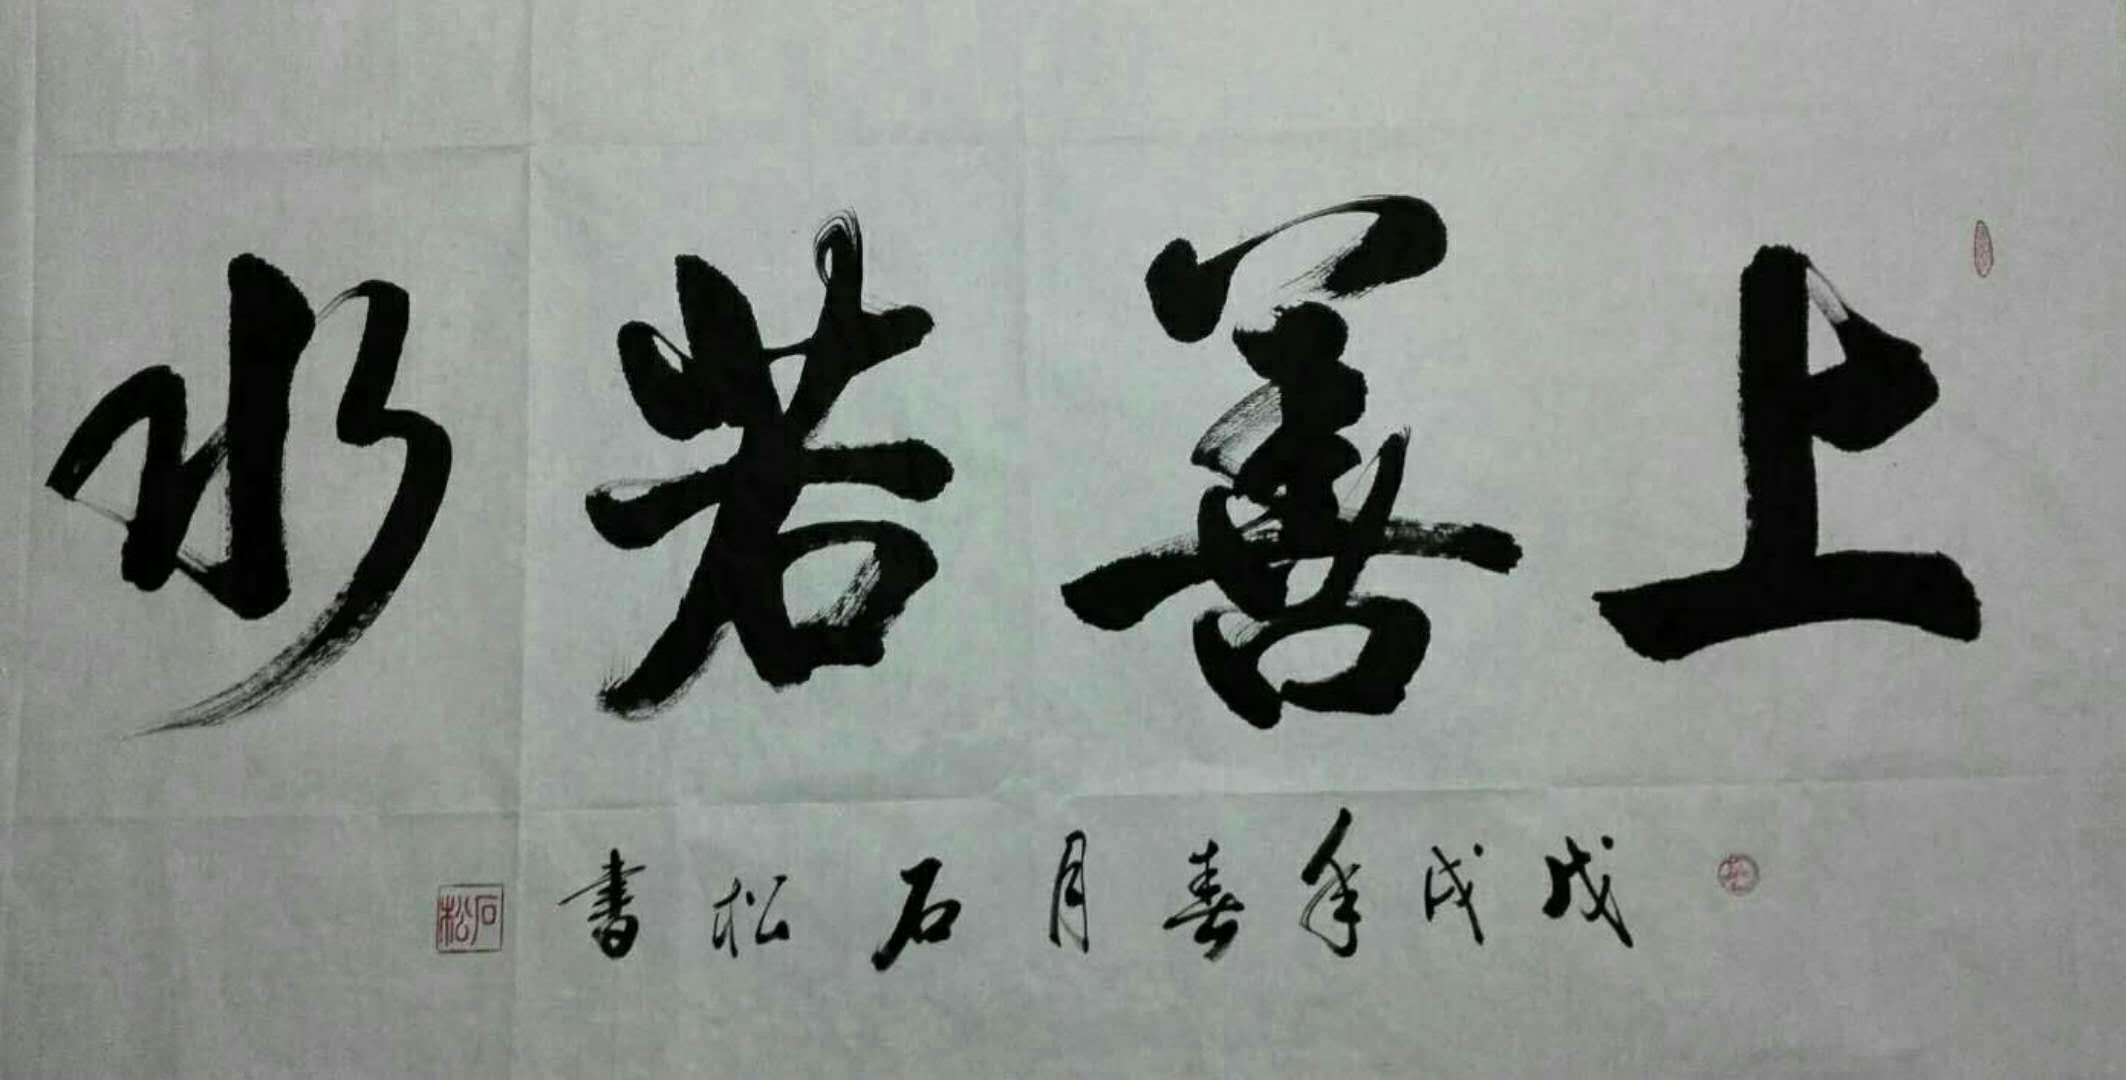 上善若水
戊戌年春月石松書
石松